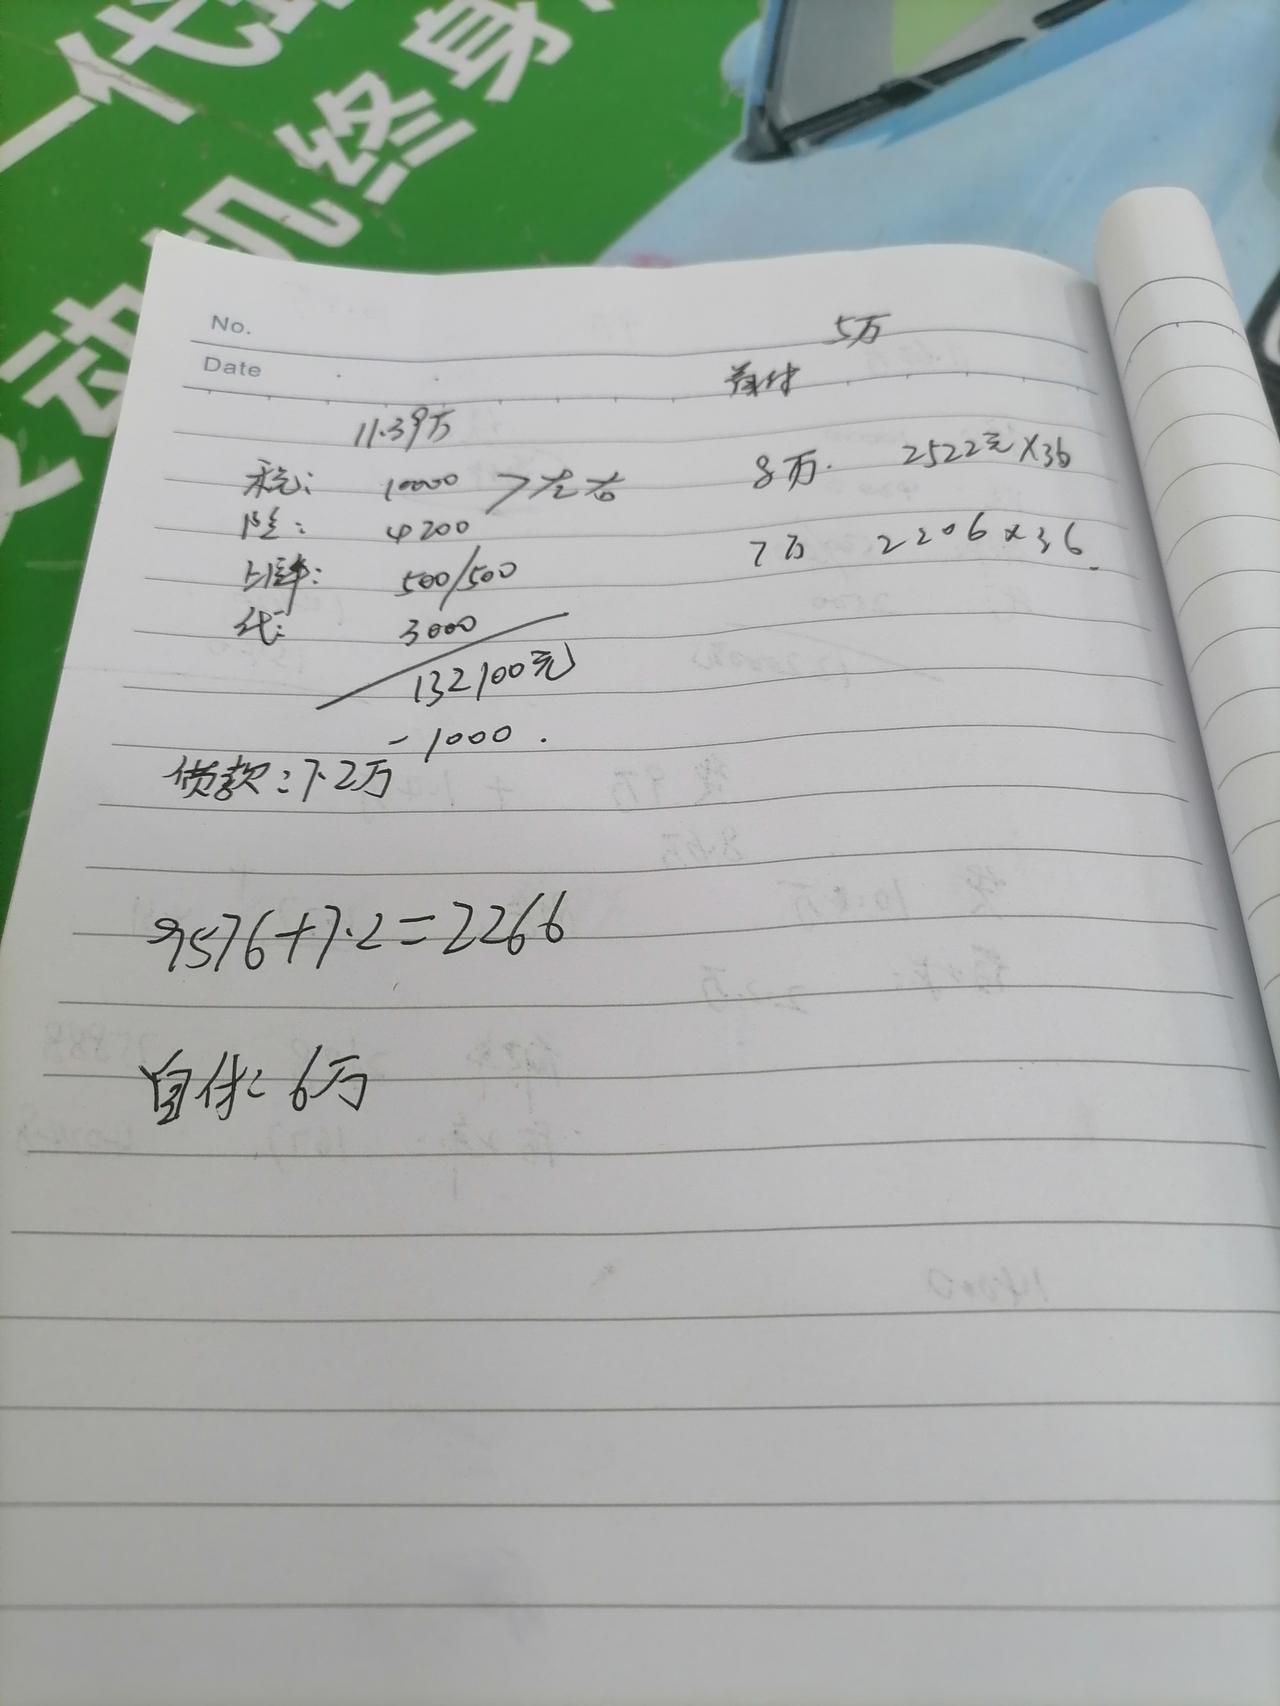 一代
发动机终身
No.
Date
5万
首付
11.39万
税: 10000 >左右
险: 4200
上牌: 500/500
代: 3000
132100元
-1000.
贷款:7.2万
8万. 2522元×36
7万 2206×36.
9576+7.2=2266
自付: 6万